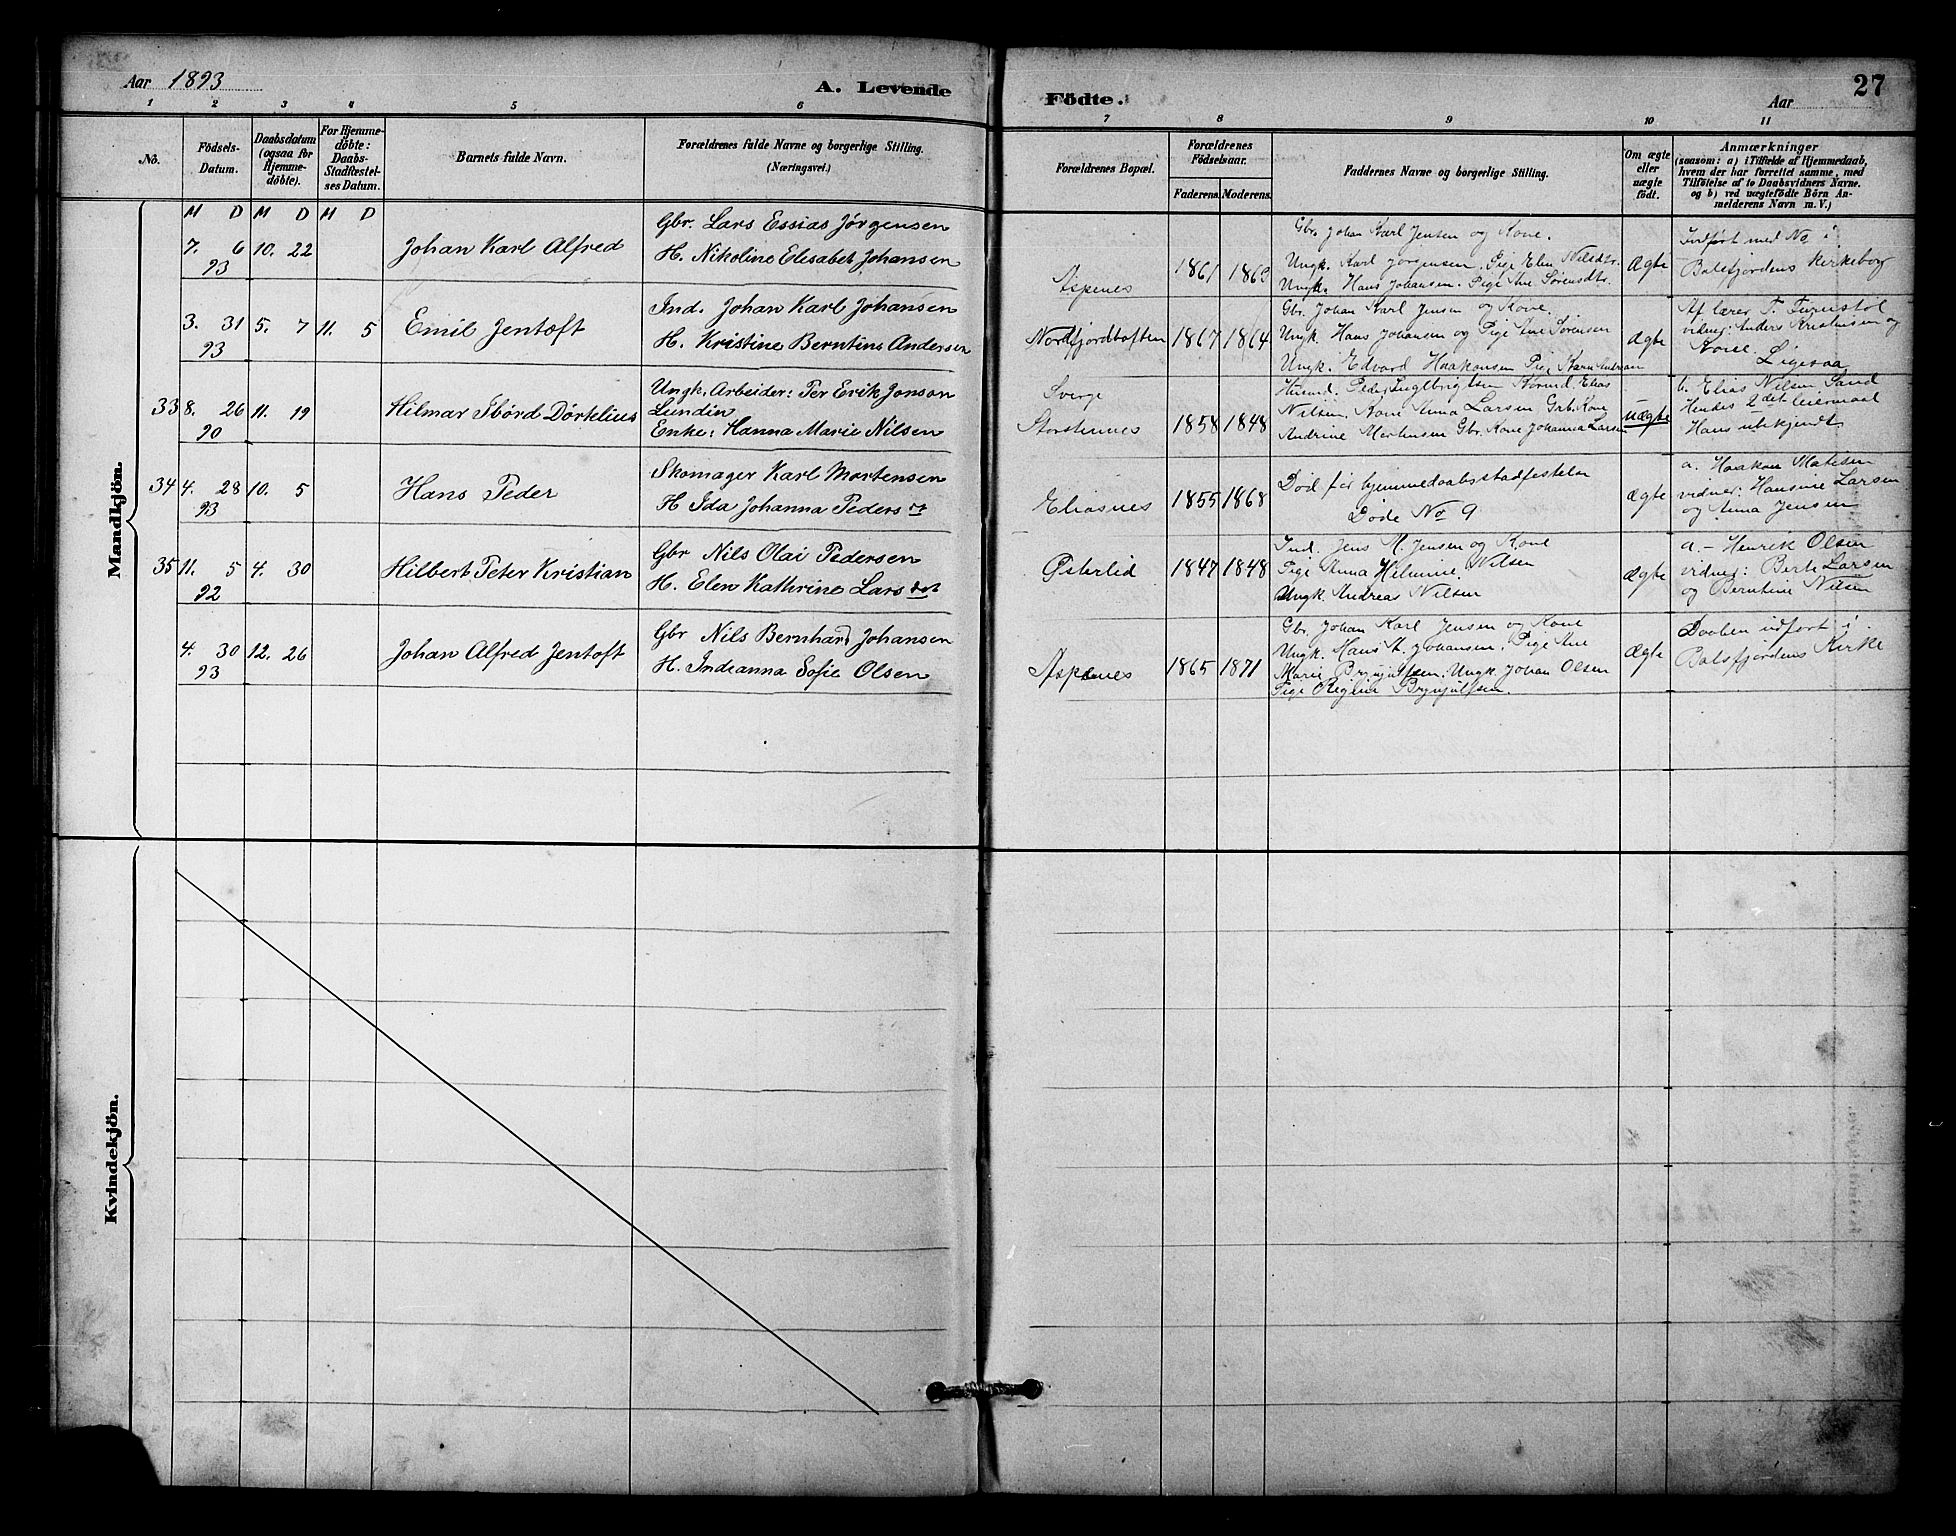 Aar 1893
A. Levende
Födte.
Aar
27
1 2 3 4 5 6 7 8 9 10 11
No.
Födsels-
Datum.
Daabsdatum
(ogsaa for
Hjemme-
döbte).
For Hjemme-
döbte:
Daabs-
Stadfæstel-
ses Datum.
Barnets fulde Navn.
Forældrenes fulde Navne og borgerlige Stilling.
(Næringsvei.)
Forældrenes Bopæl.
Forældrenes
Födselsaar.
Faderens. Moderens.
Faddernes Navne og borgerlige Stilling.
Om ægte
eller
uægte
födt.
Anmærkninger
(saasom: a) i Tilfælde af Hjemmedaab,
hvem der har forrettet samme, med
Tilföielse af to Daabsvidners Navne.
og b) ved uægtefödte Börn An-
melderens Navn m. V.)
Mandkjön.
M D M D M D
7. 6 10. 22
93
Johan Karl Alfred
Gbr. Lars Essias Jørgensen
H. Nikoline Elisabet Johansen
Aspenes
1861
Gbr. Johan Karl Jensen og Kone.
Ungk. Karl Jørgensen. Pige Elen Nilsdtr.
Ungk. Hans Johansen. Pige Ane Sørensdtr.
Ægte
Indført med No i
Balsfjordens Kirkebog
3. 31 5. 7 11. 5
93
Emil Jentoft
Ind. Johan Karl Johansen
H. Kristine Berntine Andersen
Nordfjordbotten
1867 1864
Gbr. Johan Karl Jensen og Kone.
Ungk. Hans Johansen og Pige Ane Sørensen
Ungk. Edvard Haakonsen Pige
Ægte
Af lærer T.
vidner: Anders Kristiansen og
Kone. Ligesaa
33 8. 26 11. 19
90
Hilmar Tbörd Dörtelius
Ungk. Arbeider: Per Erik Jonson
Lundin
Enke: Hanna Marie Nilsen
Sverge
Storstennes
1858 1848
Husmd. Peder Ingebrigtsen Elias
Nilsen, Kone Anna Larsen Grb. Kone
Andrine Mortensen Gbr. Kone Johanna Larsen
uægte
b. Elias Nilsen Sand
Hendes 2det leiermaal
Hans ubekjendt
34 4. 28 10. 5
93
Hans Peder
Skomager Karl Mortensen
H Ida Johanna Peders dt
Eliasnes
1855 1868
Död før hjemmedaabsstadfestelse
Døde No 9
Ægte
a. Haakon Matisen
vidner: Hansine Larsen
og Anna Jensen
35 11. 5 4. 30
92
Hilbert Peter Kristian
Gbr Nils Olai Pedersen
H. Elen Kathrine Lars dat
Østerlid
1847 1848
Ind. Jens M. Jensen og Kone
Pige Anna Helmine Nilsen
Ungk. Andreas Nilsen
Ægte
a. - Henrik Olsen
vidner: Berit Larsen
og Berntine Nilsen
4. 30 12. 26
93
Johan Alfred Jentoft
Gbr Nils Bernhard Johansen
H. Indianna Sofie Olsen
Aspenes
1865 1871
Gbr. Johan Karl Jensen og Kone
Ungk. Hans A. Johansen. Pige Ane
Marie Brynjulfsen. Ungk. Johan Olsen
Pige Regine Brynjulfsen.
Ægte
Daaben udført i
Balsfjordens Kirke
Kvindekjön.